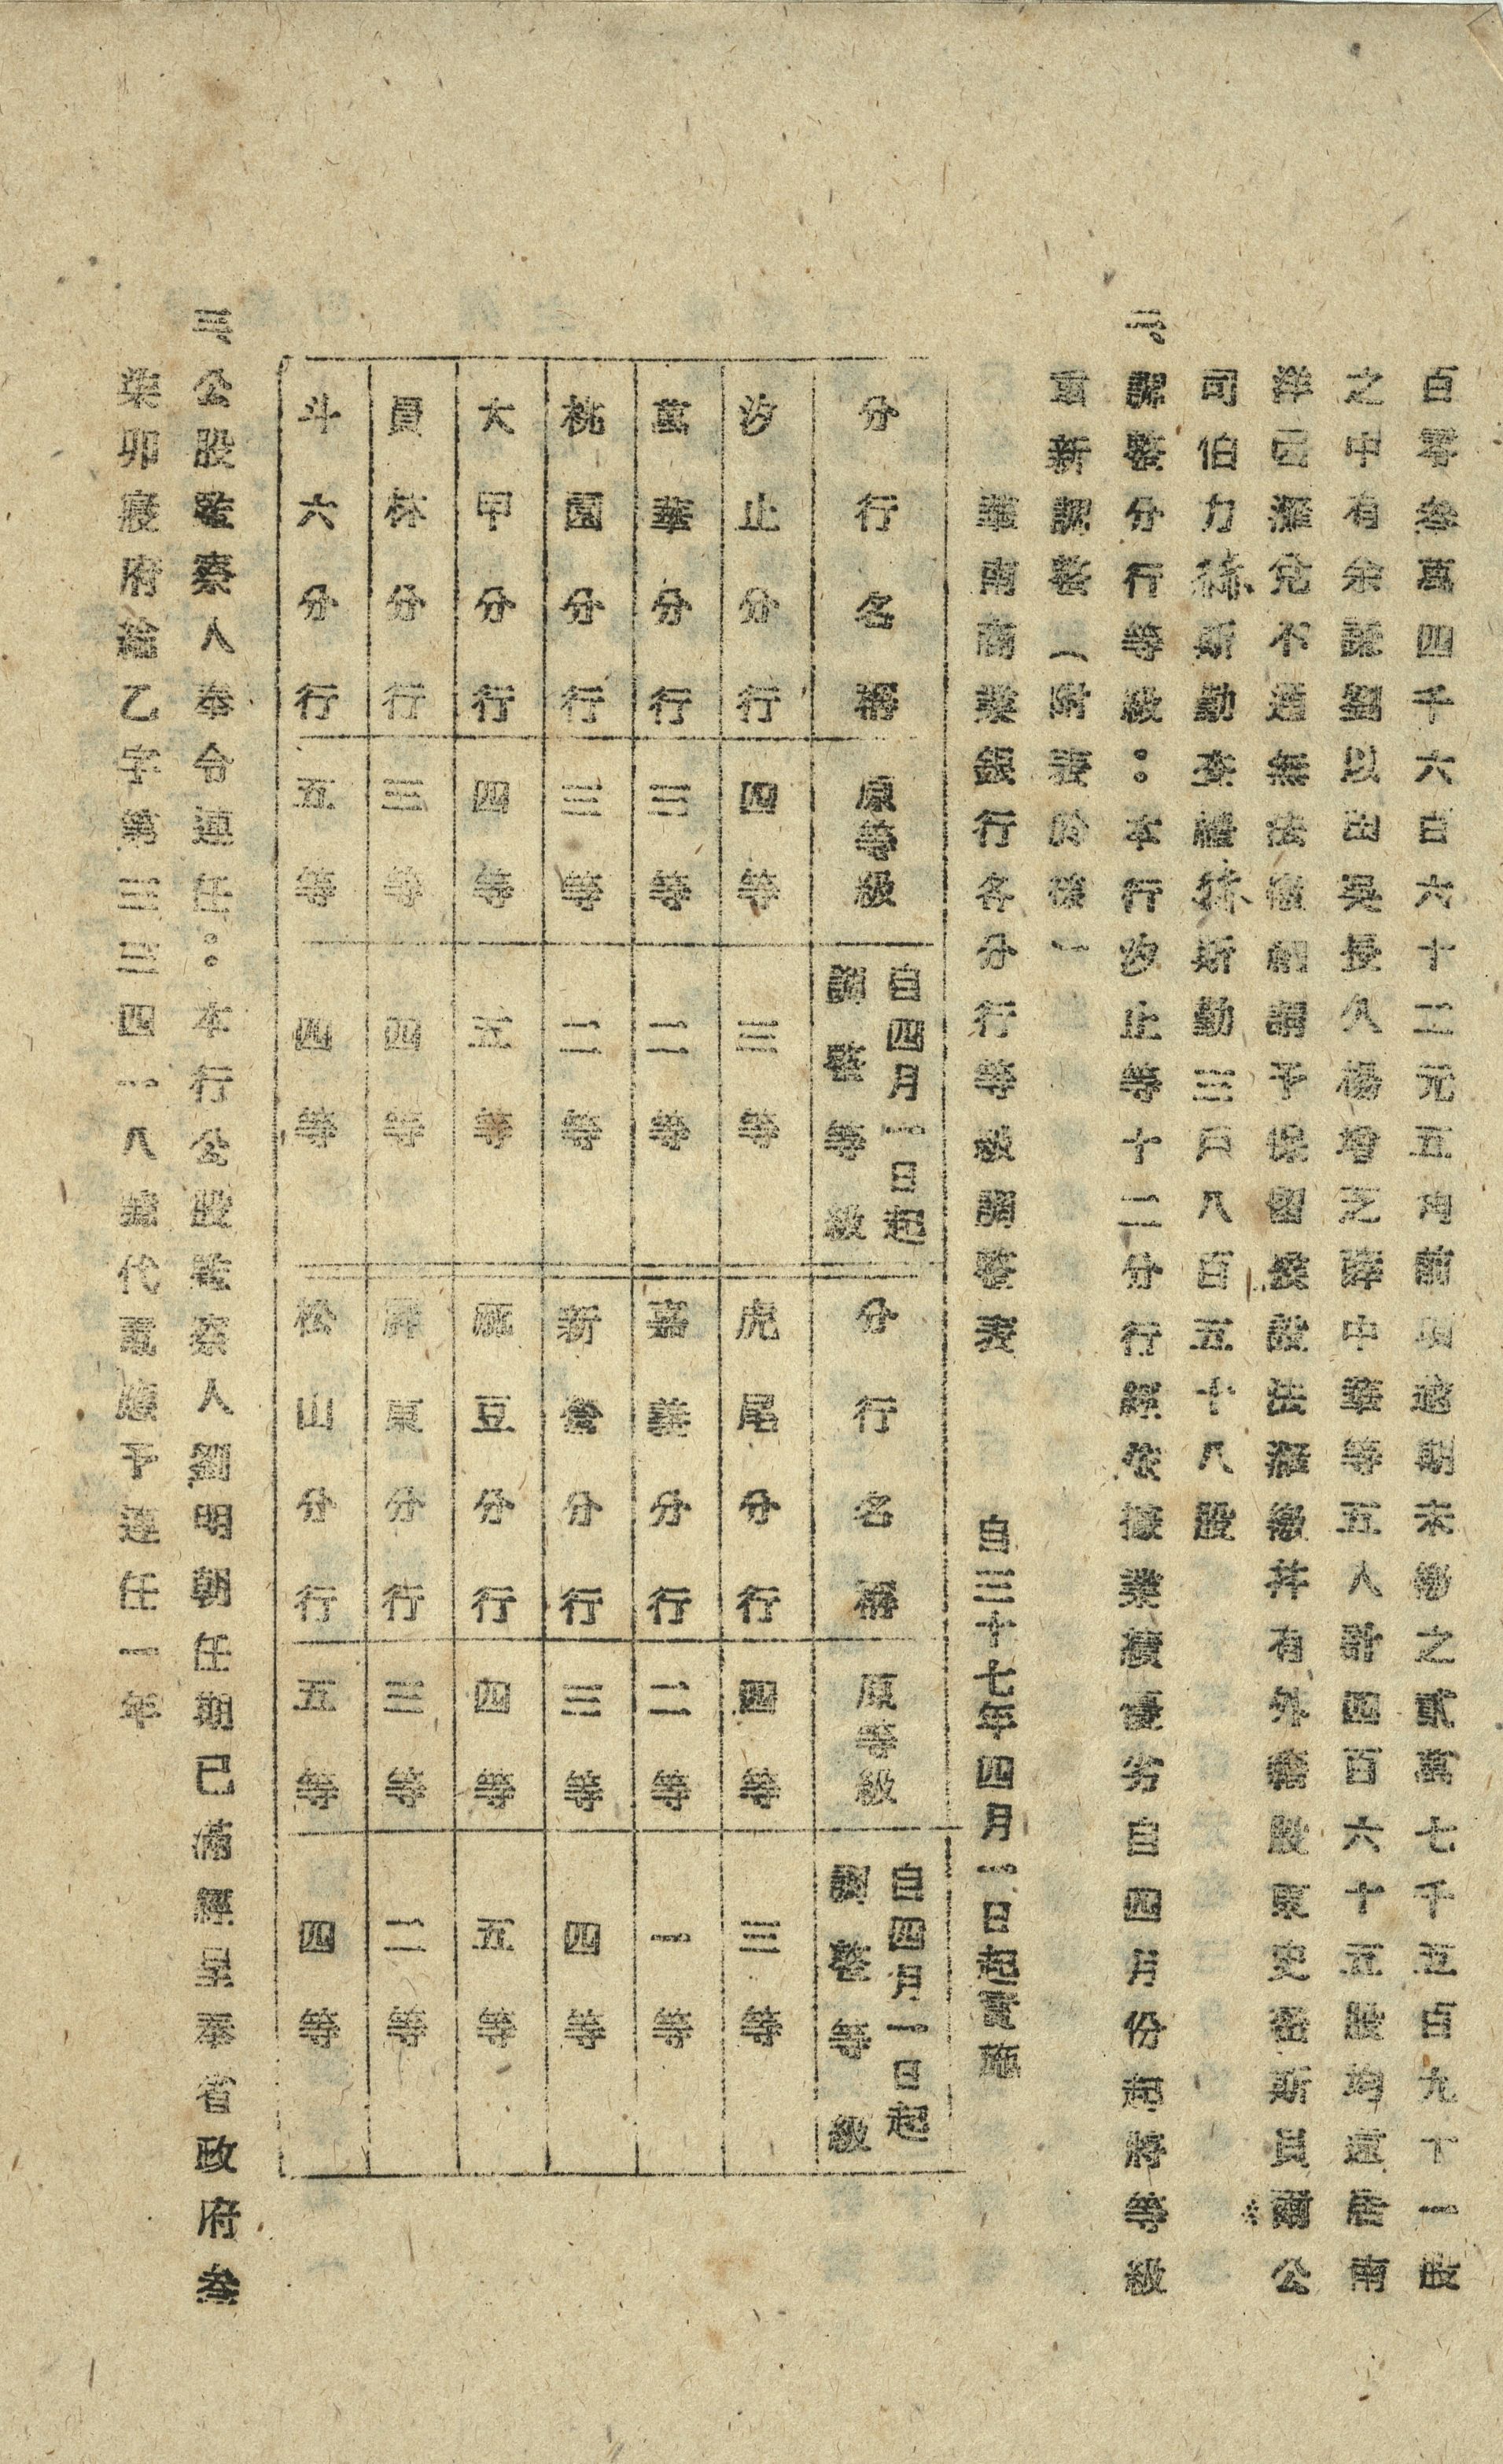 百零叁萬四千六百六十二元五角前項逾期未繳之貳萬七千五百九十一股
之中有余謀劉以出吳長久楊增乏陣中華等五人計四百六十五股均遠居南
洋因滙兌不通無法徵詢請予保留股設法滙繳并有外僑股東史密斯員爾公
司伯力林斯勤麥禮林斯勤三戶八百五十八股
二、調整分行等級：本行汐止等十二分行經依據業績優劣自四月份起將等級
重新調整（附表於後）
華南商業銀行各分行等級調整表　自三十七年四月一日起實施
分行名稱　原等級　自四月一日起調整等級　分行名稱　原等級　自四月一日起調整等級
汐止分行　四等　三等　虎尾分行　四等　三等
萬華分行　三等　二等　嘉義分行　二等　一等
桃園分行　三等　二等　新營分行　三等　四等
大甲分行　四等　五等　麻豆分行　四等　五等
員林分行　三等　四等　屏東分行　三等　二等
斗六分行　五等　四等　松山分行　五等　四等
三、公股監察人奉令連任。本行公股監察人劉明朝任期已滿經呈奉省政府叁
柒卯寢府綸乙字第三三四一八號代電應予連任一年